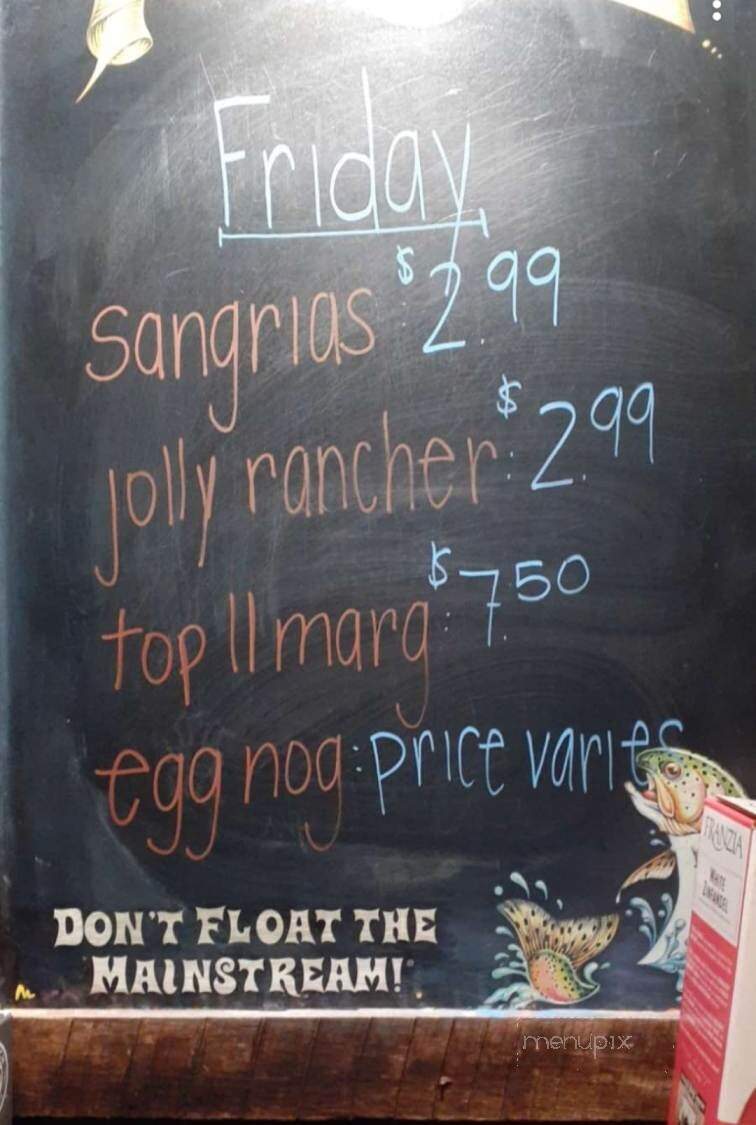 Friday
Sangrias: $2.99
jolly rancher: $2.99
top 11 marg: $7.50
egg nog: price varies
DON'T FLOAT THE
MAINSTREAM!
FRANZIA
WHITE
ZINFANDEL
menupix